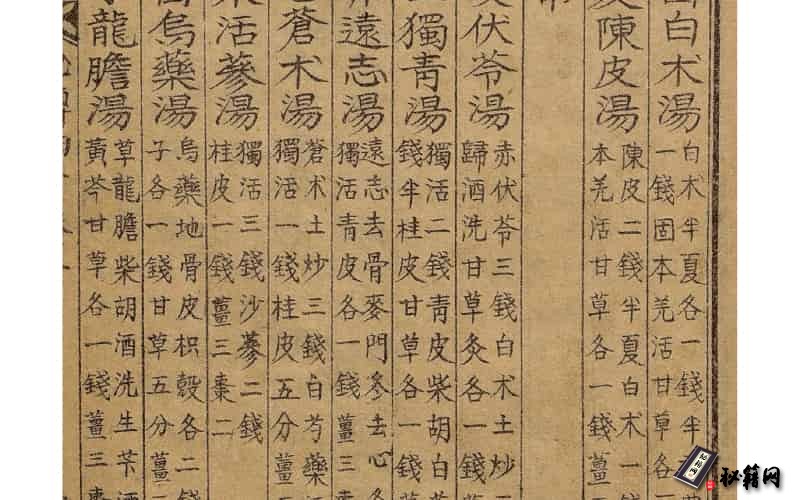 白术湯
白术半夏各一錢半
一錢固本羌活甘草各
陳皮湯
陳皮二錢半夏白术一
本羌活甘草各一錢薑
伏苓湯
赤伏苓三錢白术土炒二
歸酒洗甘草灸各一
獨靑湯
獨活二錢靑皮柴胡白
錢半桂皮甘草各一錢薑
遠志湯
遠志去骨麥門冬去心各
獨活靑皮各一錢薑三
蒼术湯
蒼术土炒三錢白芍藥
獨活一錢桂皮五分薑
活蔘湯
獨活三錢沙蔘二錢
桂皮一錢薑三棗二
烏藥湯
烏藥地骨皮枳殼各二錢
子各一錢甘草五分薑
龍膽湯
草龍膽柴胡酒洗生芐酒
黃芩甘草各一錢薑三棗
秘籍网